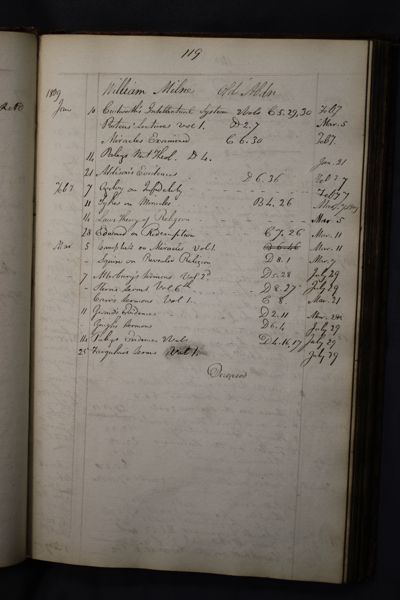 119
1809 William Milne Old Abdn
Jan 10 Cudworth's Intellectual System 2 Vols C 5. 29, 30 Feb 7
Porteus' Lectures vol 1. D 2. 7 Mar. 5
Miracles Examined C 6. 30 Feb 7.
14 Paley's Nat Theol. D 4. Jan. 21
21 Addison's Evidences D 6. 36 Feb 7
Feb 7 7 on Infidelity Feb 7
11 Sykes on Miracles B 4. 26
14 Law's Theory of Religion Mar 5
28 Edwards on Redemption C 7. 26 Mar. 11
Mar 5 Campbell on Miracles Vol 1. Mar. 11
" Squire on Revealed Religion D 8. 1 Mar. 7
7 Atterbury's Sermons Vol 2d D 5. 28 July 29
" Sterne's Serms Vol 6th D 8. 27 July 29
Carr's Sermons Vol 1. C 8. Mar. 21
11 Gerard's Evidences D 2. 11 Mar. 24
Sermons D 6. 4 July 29
14 Paley's Evidences 2 Vols D 4. 16, 17 July 29
25 Farquhar's Serms Vol 1. July 29